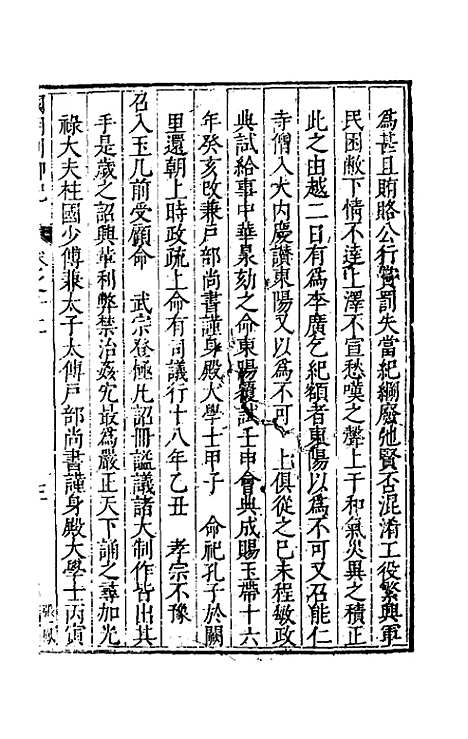 為甚且賄賂公行賞罰失當紀綱廢弛賢否混淆工役繁興軍
民困敝下情不達上澤不宣愁嘆之聲上干和氣災異之積正
此之由越二日有為李廣乞祠額者東陽以為不可又召能仁
寺僧入大內慶讚東陽又以為不可 上俱從之己未程敏政
典試給事中華㫤劾之命東陽覆試壬申會典成賜玉帶十六
年癸亥改兼戶部尚書謹身殿大學士甲子 命祀孔子於闕
里還朝上時政疏上命有司議行十八年乙丑 孝宗不豫
召入玉几前受顧命 武宗登極凡詔冊謚議諸大制作皆出其
手是歲之詔興革利弊禁治姦宄最為嚴正天下誦之尋加光
祿大夫柱國少傅兼太子太傅戶部尚書謹身殿大學士丙寅
卷之十二
三